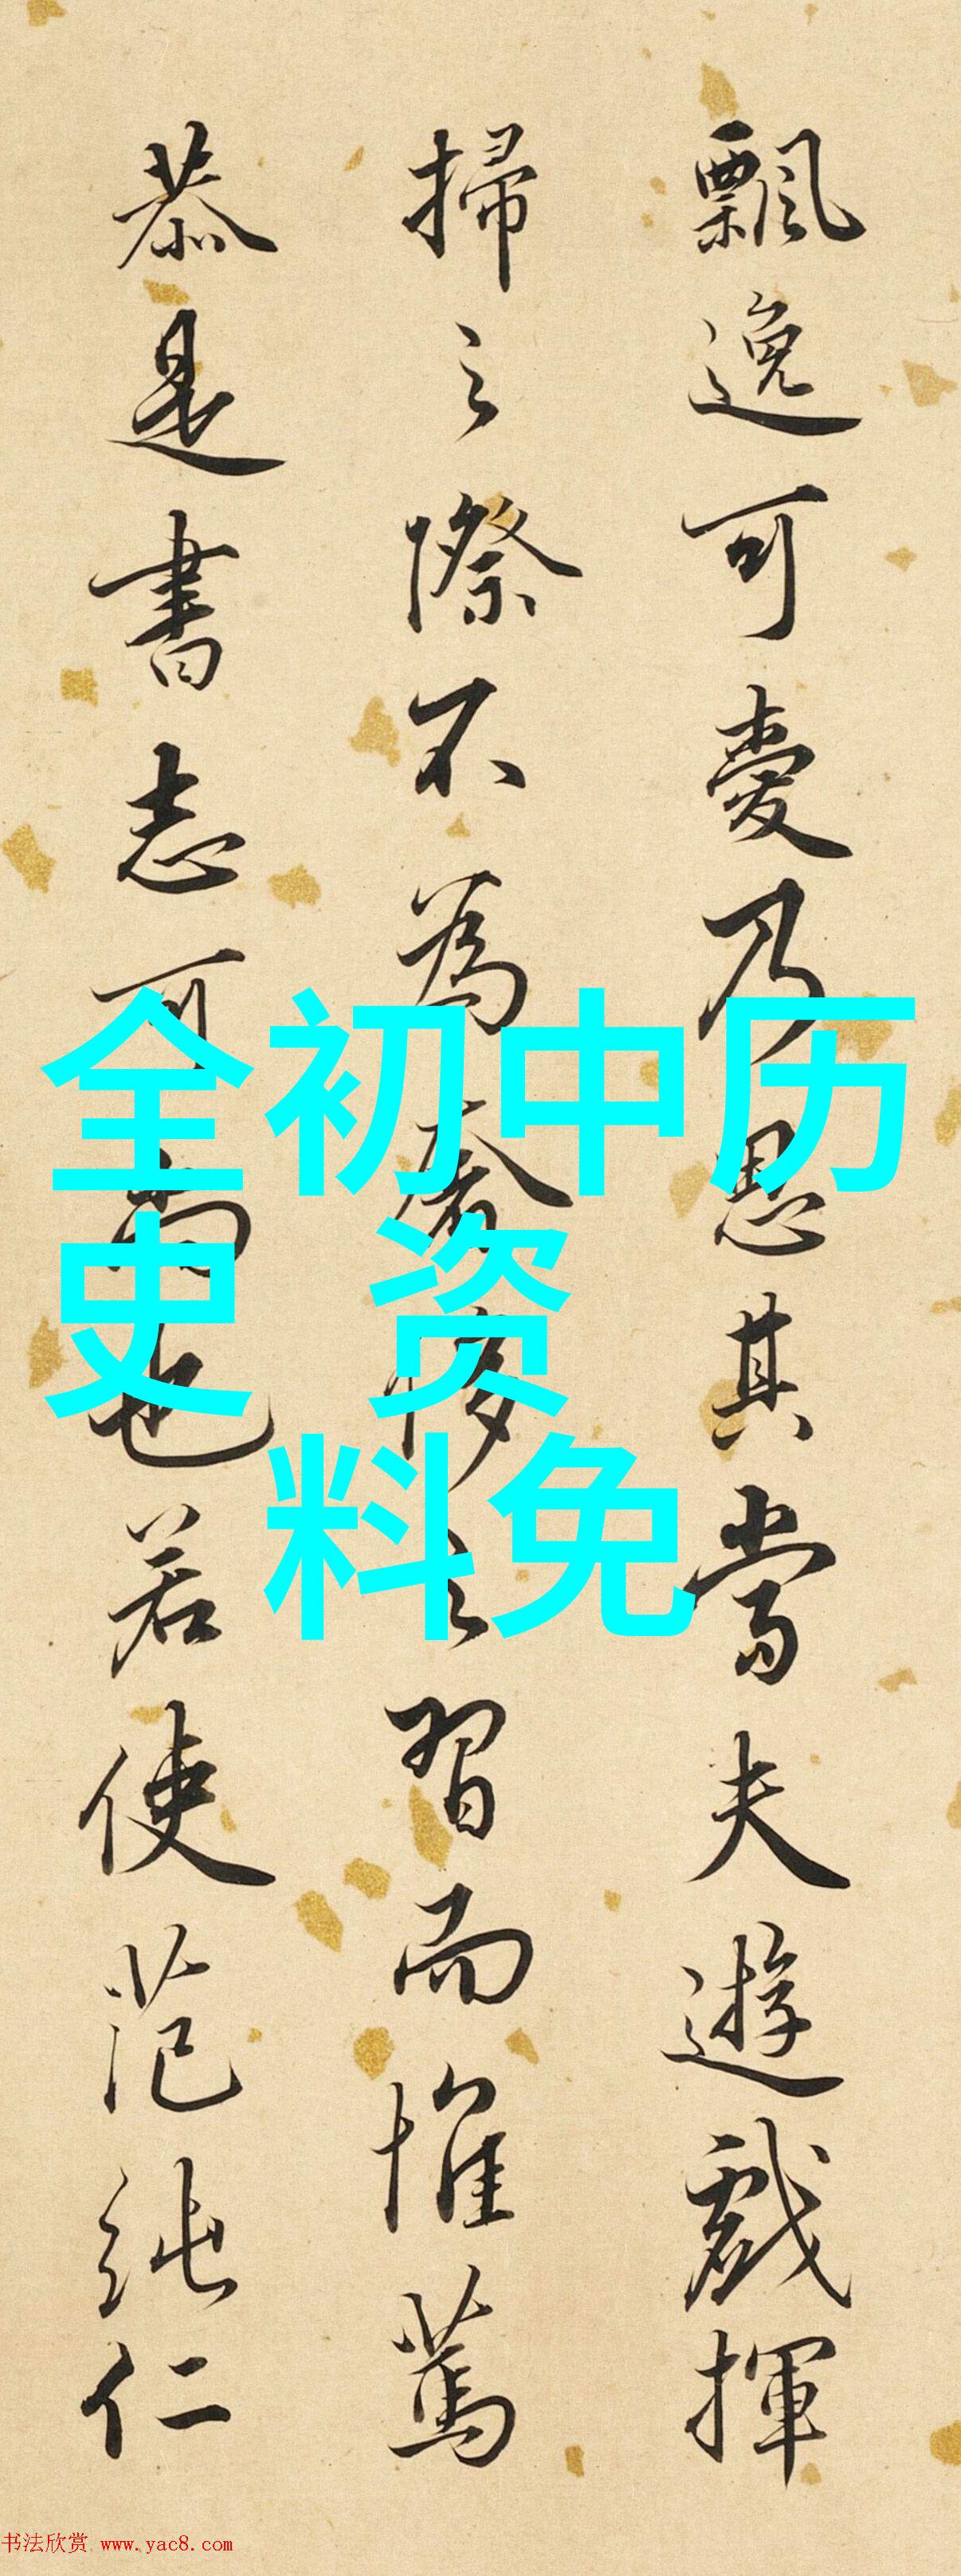 飄逸可愛乃思其當夫遊戲揮
掃之際不為奢侈之習而惟篤
恭是書志可尚也若使范純仁
全初中历
史 资
料免
书法欣赏 www.yac8.com